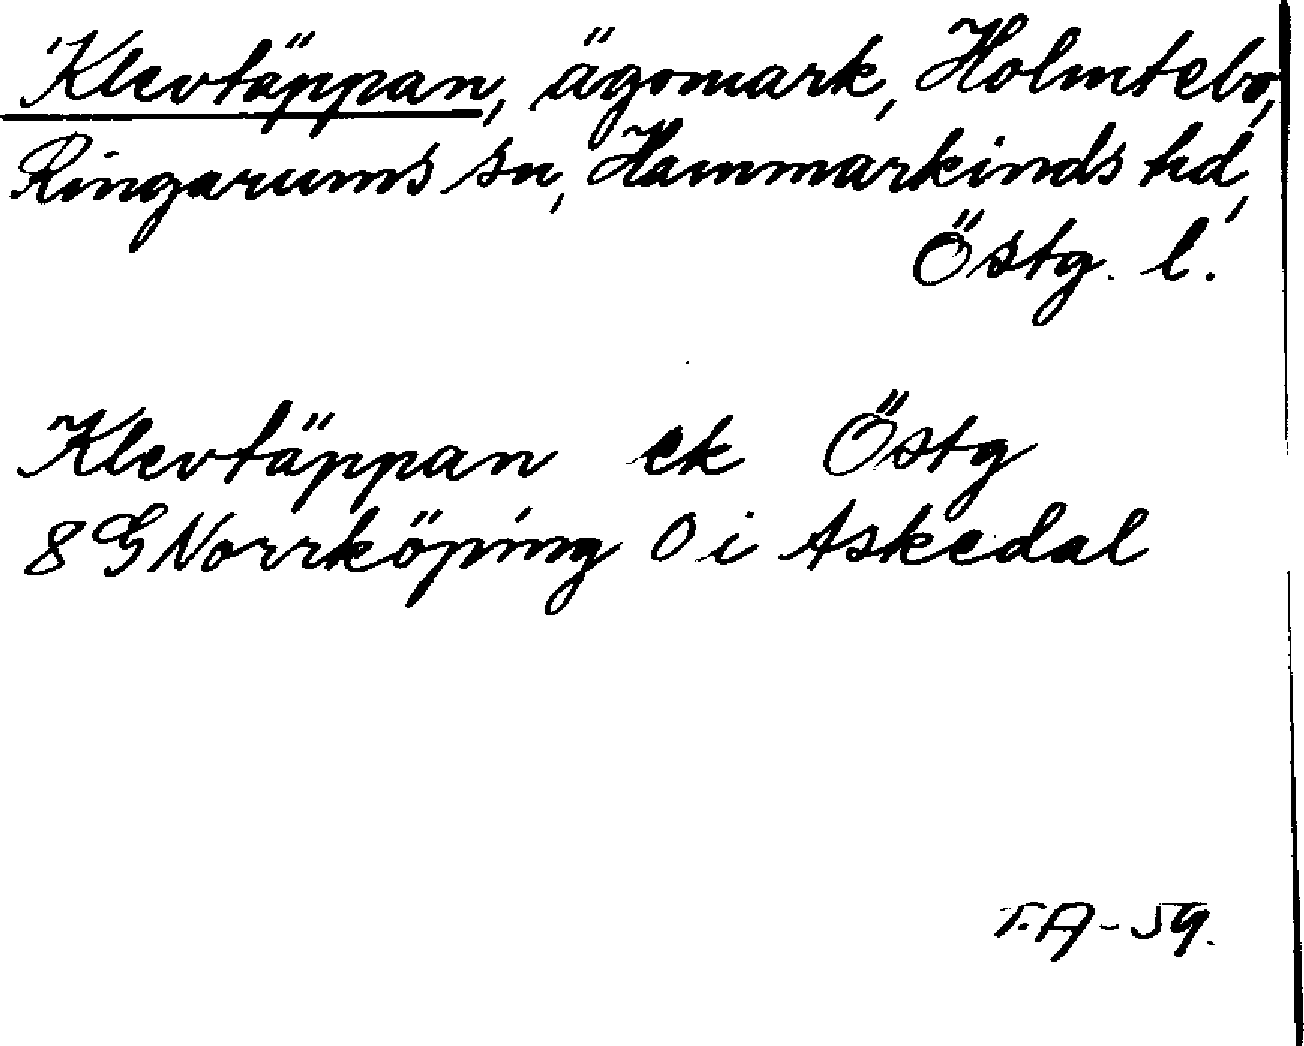 'Klevtäppan, ägomark, Holmtebo,
Ringarums sn, Hammarkinds hd,
Östg. l.
Klevtäppan ek Östg
8 G Norrköping O i Askedal
T.A-59.